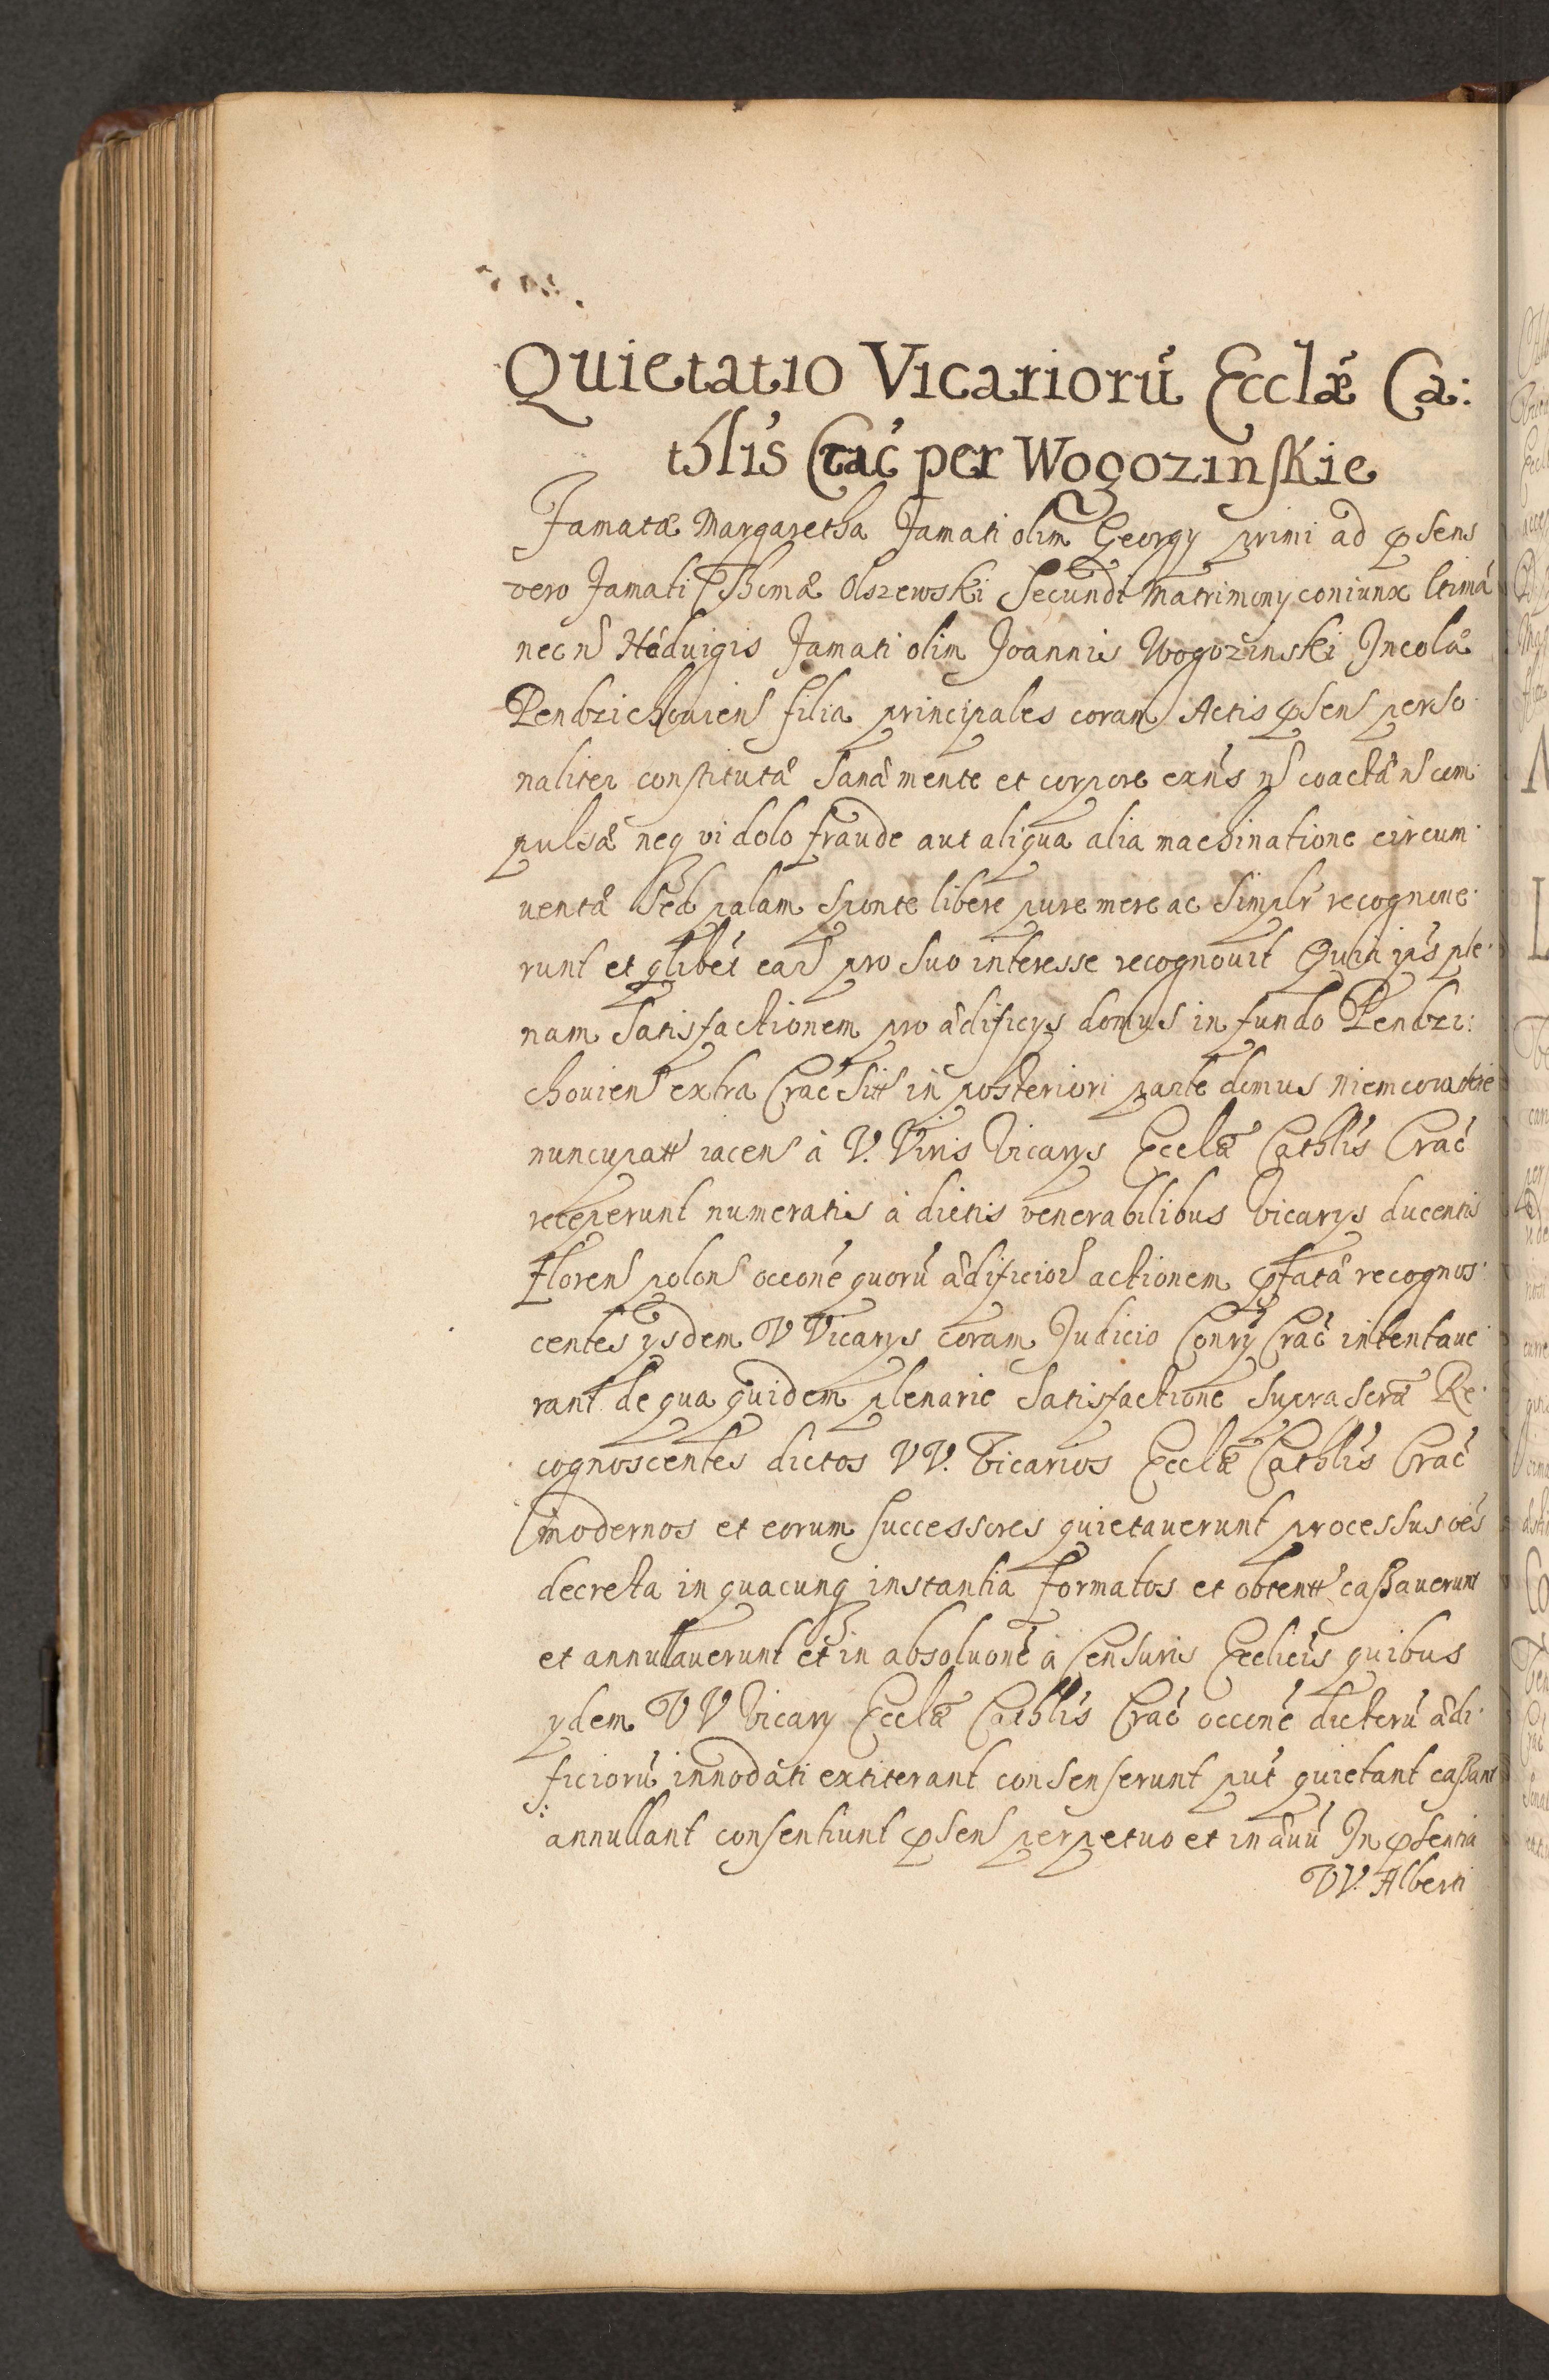 Quietatio Vicariorū Ecclæ Ca:
thlis Crac per Wogozinskie
Famatæ Margaretha Famati olim Georgy primi ad psens
vero Famati Thomæ Olszewski Secundi Matrimony coniunx ltima
nec n Hedvigis Famati olim Joannis Wogozinski Incolæ
Pendzichouiens filia principales coram Actis psens perso
naliter constitutæ sanâ mente et corpore exns n coactæ n com
pulsæ neq vi dolo fraude aut aliqua alia machinatione circum
uentæ sed palam sponte libere pure mere ac simplr recognoue
runt et qlibet ear pro suo interesse recognouit Quia ips ple
nam satisfactionem pro ædificys domus in fundo Pendzi:
chouiens extra Crac sitt in posteriori parte domus niemcowskie
nuncupatt iacens à V. Viris Vicarys Ecclæ Cathlis Crac
receperunt numeratis à dictis venerabilibus Vicarys ducentis
Florens polons occone quorū ædificior actionem pfatæ recognos
centes ysdem V Vicarys coram Judicio Conry Crac intentaue
rant de qua quidem plenarie satisfactione supra scra Re
cognoscentes dictos VV. Vicarios Ecclæ Cathlis Crac
modernos et eorum successores quietauerunt processus oes
decreta in quacunq instantia formatos et obtentt cassauerunt
et annullauerunt et in absoluone à Censuris Ecclicis quibus
ydem VV Vicary Ecclæ Cathlis Crac occone dictorū ædi
ficiorū innodati extiterant consenserunt put quietant cassant
annullant consentiunt psens perpetuo et in æuū In psentia
VV. Alberti